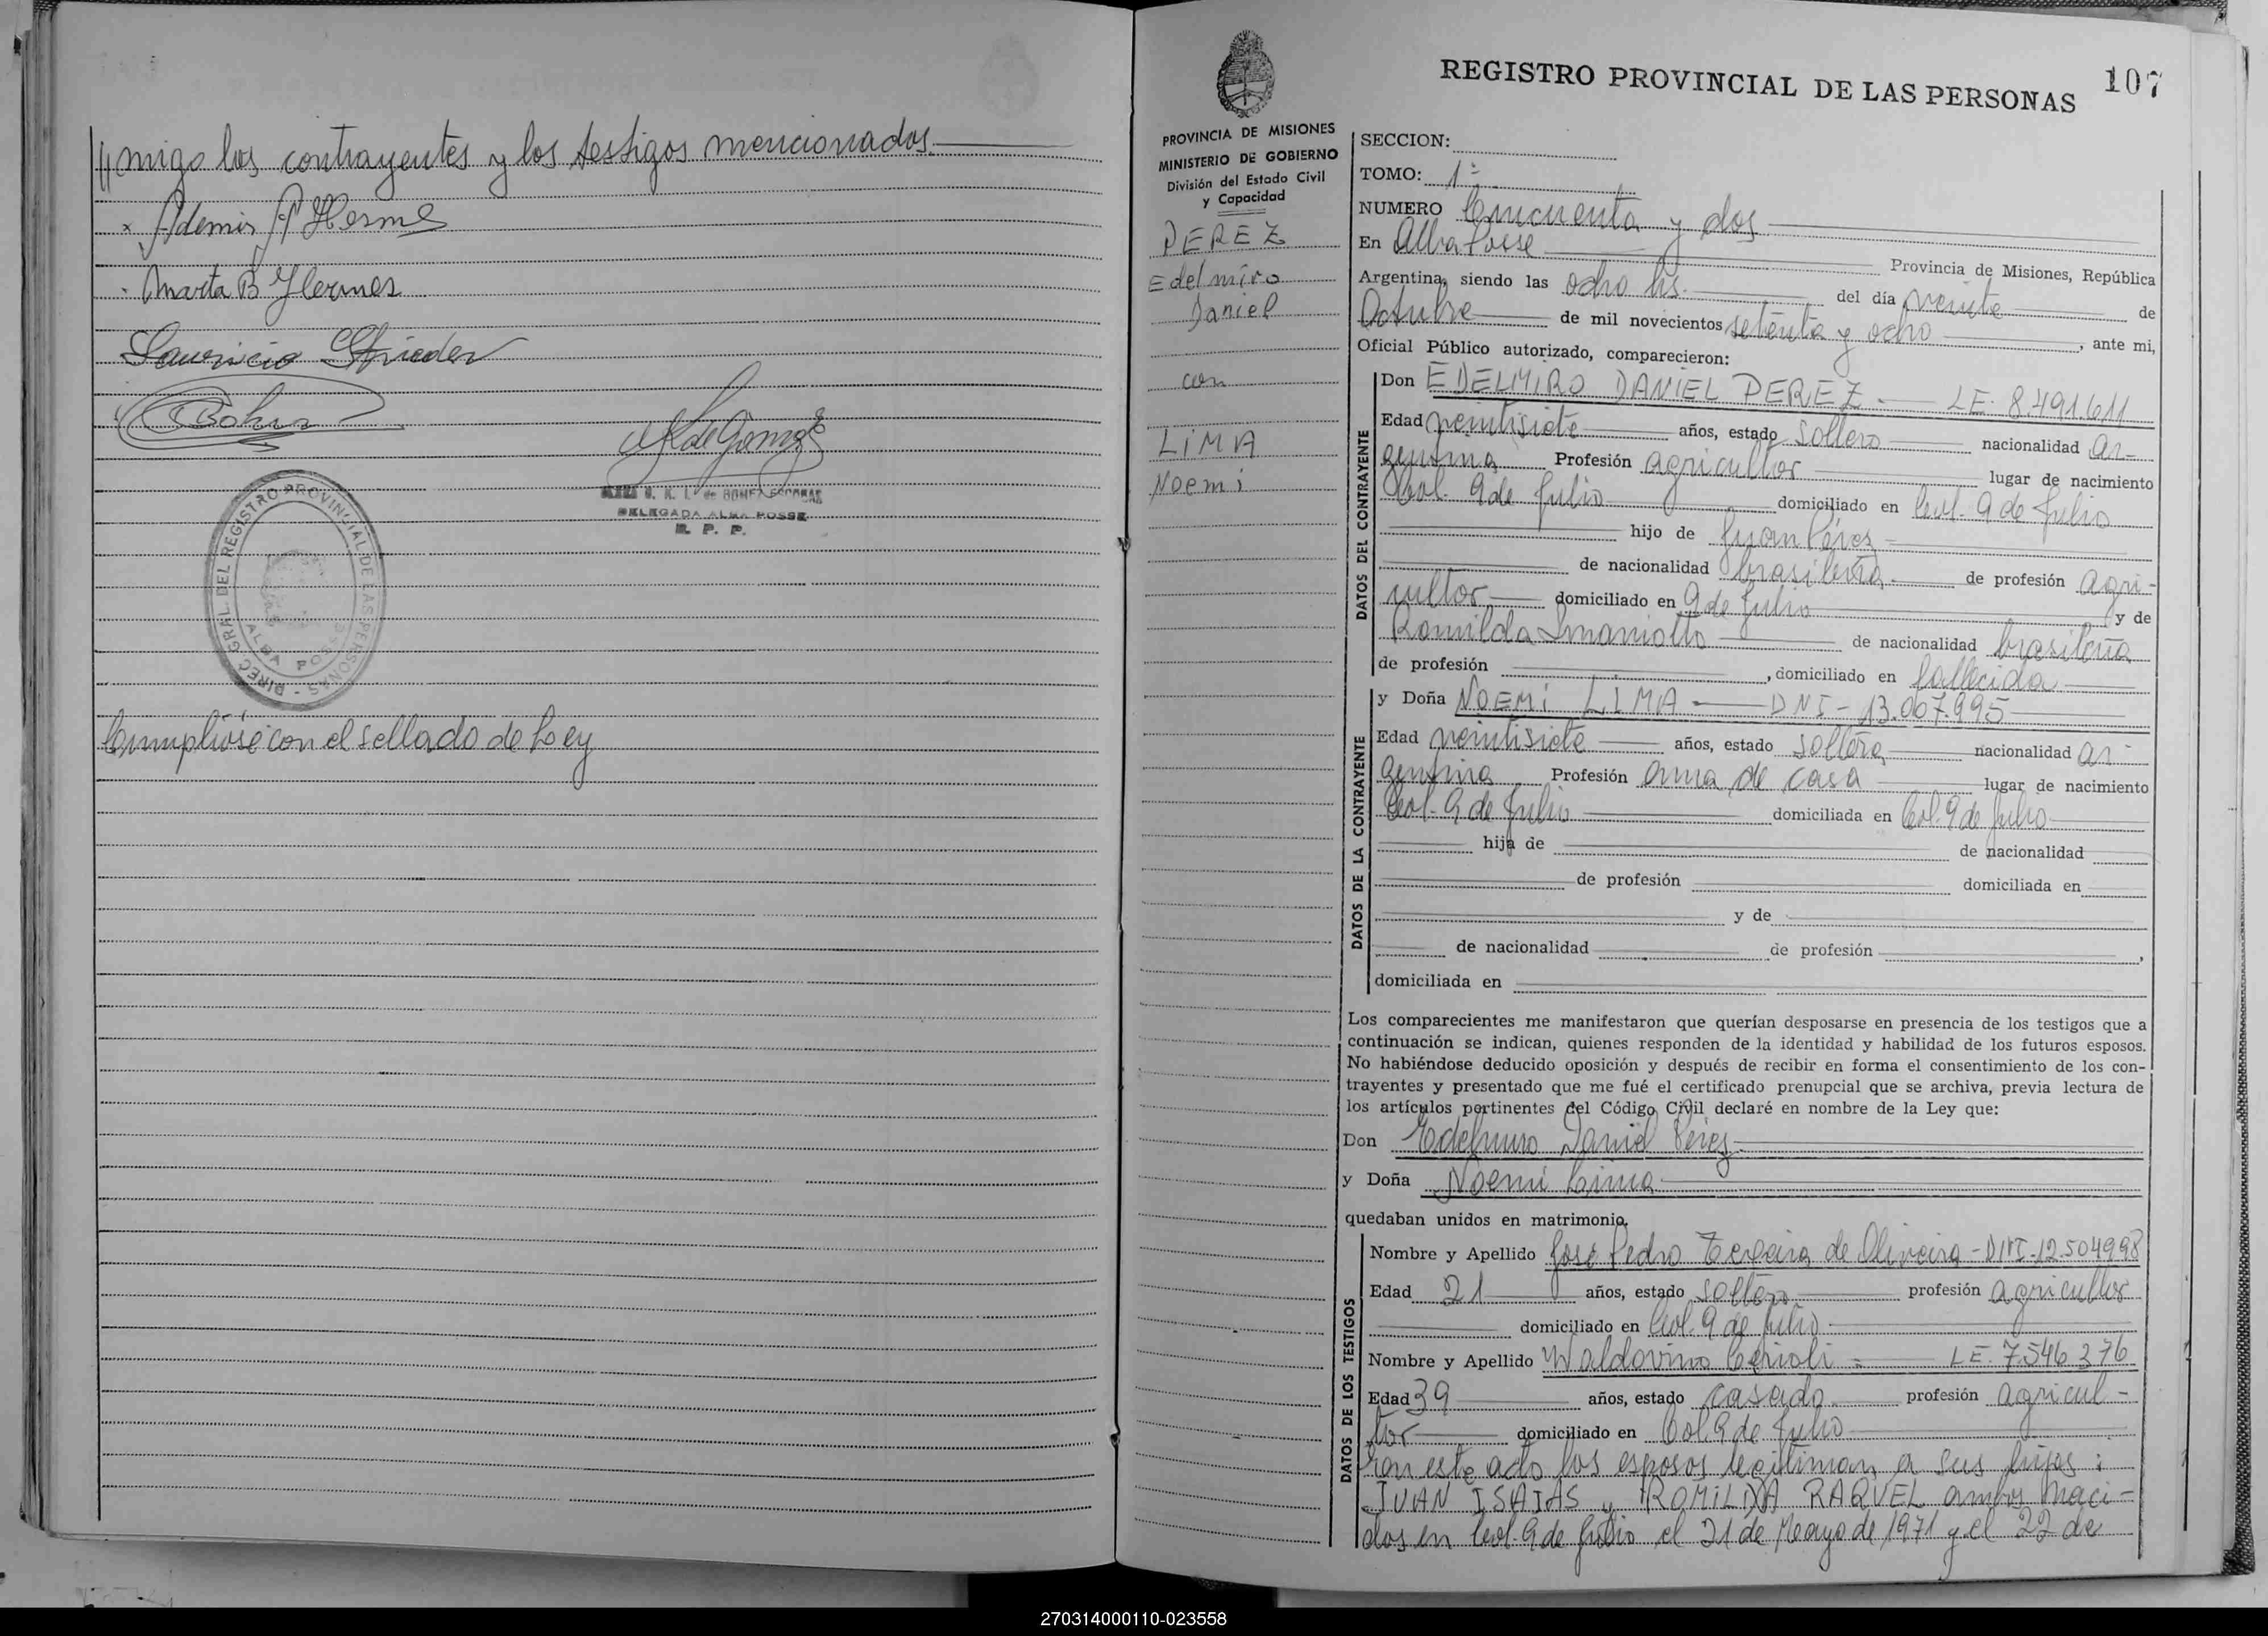 //migo los contrayentes y los testigos mencionados.
x Ademir A Hermes
Marta B Hermes
Strieder
Bohn
DELEGADA ALBA POSSE
R. P. P.
DIREC. GRAL. DEL REGISTRO PROVINCIAL DE LAS PERSONAS -
ALBA POSSE
Cumplióse con el sellado de Ley
REGISTRO PROVINCIAL DE LAS PERSONAS
107
PROVINCIA DE MISIONES
MINISTERIO DE GOBIERNO
División del Estado Civil
y Capacidad
PEREZ
Edelmiro
Daniel
con
LIMA
Noemi
SECCION:
TOMO: 1º
NUMERO Cincuenta y dos
En Alba Posse Provincia de Misiones, República
Argentina, siendo las ocho hs. del día veinte de
Octubre de mil novecientos setenta y ocho, ante mi,
Oficial Público autorizado, comparecieron:
DATOS DEL CONTRAYENTE
Don EDELMIRO DANIEL PEREZ - LE 8.491.611
Edad veintisiete años, estado soltero nacionalidad ar-
gentina Profesión agricultor lugar de nacimiento
Col. 9 de Julio domiciliado en Col. 9 de Julio
hijo de Juan Pérez
de nacionalidad brasileña de profesión agri-
cultor domiciliado en 9 de Julio y de
Romilda Smaniotto de nacionalidad brasileña
de profesión , domiciliado en fallecida
DATOS DE LA CONTRAYENTE
y Doña NOEMI LIMA - DNI - 13.007.995
Edad veintisiete años, estado soltera nacionalidad ar-
gentina Profesión ama de casa lugar de nacimiento
Col. 9 de Julio domiciliada en Col. 9 de Julio
hija de de nacionalidad
de profesión domiciliada en
y de
de nacionalidad de profesión ,
domiciliada en
Los comparecientes me manifestaron que querían desposarse en presencia de los testigos que a
continuación se indican, quienes responden de la identidad y habilidad de los futuros esposos.
No habiéndose deducido oposición y después de recibir en forma el consentimiento de los con-
trayentes y presentado que me fué el certificado prenupcial que se archiva, previa lectura de
los artículos pertinentes del Código Civil declaré en nombre de la Ley que:
Don Edelmiro Daniel Pérez
y Doña Noemi Lima
quedaban unidos en matrimonio.
DATOS DE LOS TESTIGOS
Nombre y Apellido José Pedro Texeira de Oliveira - DNI - 12.504998
Edad 21 años, estado soltero profesión agricultor
domiciliado en Col. 9 de Julio
Nombre y Apellido Waldovino Cerioli - LE. 7.546.376
Edad 39 años, estado casado profesión agricul-
tor domiciliado en Col. 9 de Julio
este acto los esposos legitiman a sus hijos:
JUAN ISAIAS y ROMILDA RAQUEL ambos naci-
dos en Col. 9 de Julio el 21 de Mayo de 1971 y el 22 de
270314000110-023558